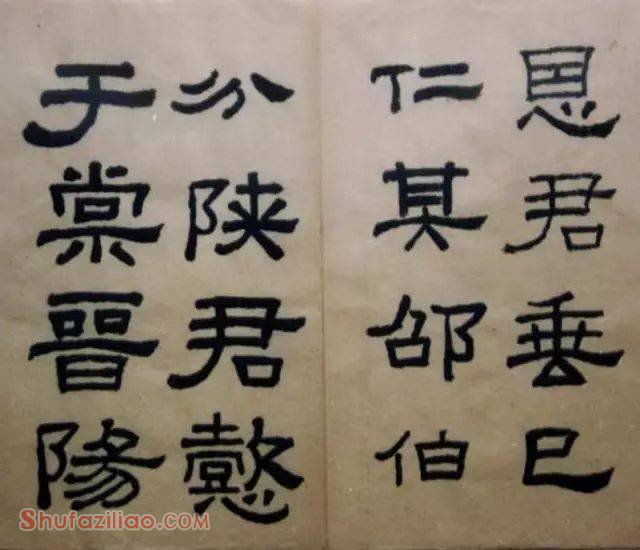 恩君垂已
仁其邵伯
分陕君懿
于棠晉陽
Shufaziliao.COM